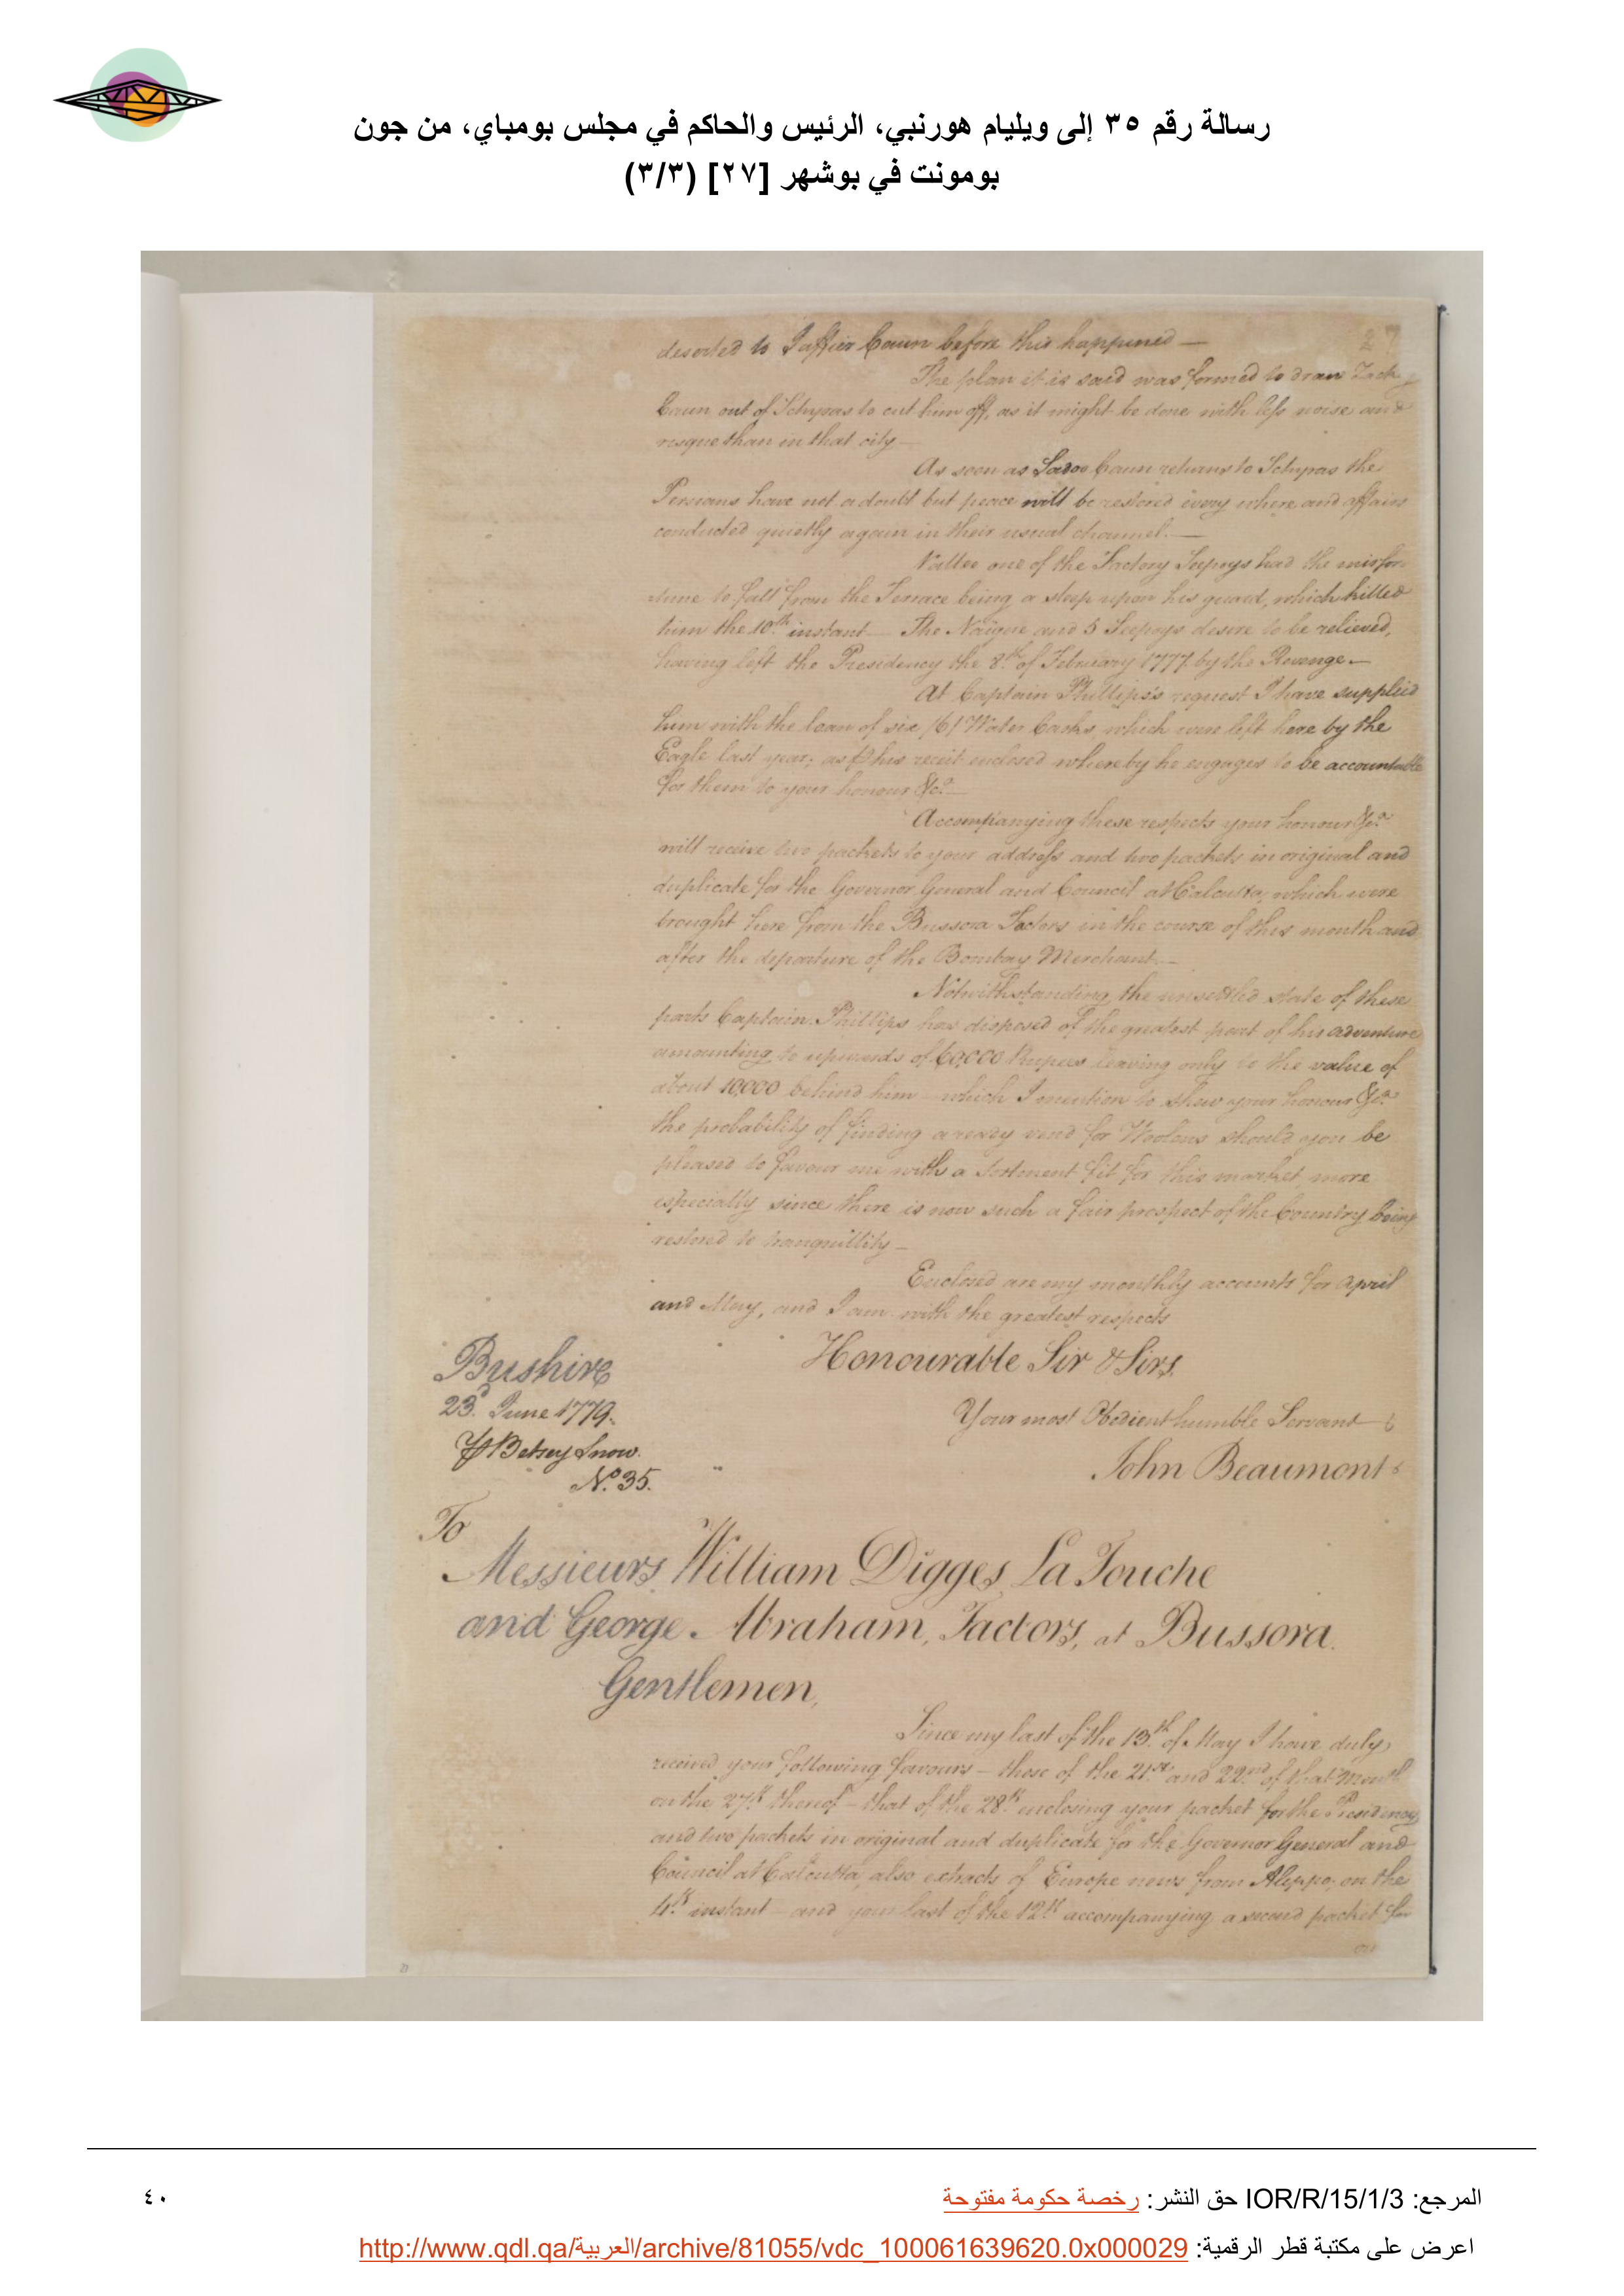 رسالة رقم ٣٥ إلى ويليام هورنبي، الرئيس والحاكم في مجلس بومباي، من جون
بومونت في بوشهر [٢٧] (٣/٣)
27
deserted to Jaffier Caun before this happened —
The plan it is said was formed to draw Zacky
Caun out of Schyras to cut him off, as it might be done with less noise and
risque than in that city —
As soon as Sadoo Caun returns to Schyras the
Persians have not a doubt but peace will be restored every where and affairs
conducted quietly again in their usual channel. —
one of the Factory Seepoys had the misfor
tune to fall from the Terrace being a sleep upon his guard, which killed
him the 10th. instant — The Naigue and 5 Seepoys desire to be relieved,
having left the Presidency the 8th. of February 1777 by the Revenge —
At Captain Phillips's request I have supplied
him with the loan of six /6/ Water Casks, which were left here by the
Eagle last year; as  his receit enclosed whereby he engages to be accountable
for them to your honour &ca. —
Accompanying these respects your honour &ca.
will receive two packets to your address and two packets in original and
duplicate for the Governor General and Council at Calcutta, which were
brought here from the Bussora Factors in the course of this month and
after the departure of the Bombay Merchant —
Notwithstanding the unsettled state of these
parts Captain Phillips has disposed of the greatest part of his adventure
amounting to upwards of 60,000 Rupees leaving only to the value of
about 10,000 behind him — which I mention to shew your honour &ca.
the probability of finding a ready vend for Woolens should you be
pleased to favour me with a sortment fit for this market, more
especially since there is now such a fair prospect of the Country being
restored to tranquillity —
Enclosed are my monthly accounts for April
and May, and I am with the greatest respects
Honourable Sir & Sirs,
Bushire
23d. June 1779.
Your most Obedient humble Servant
Betsey Snow.
John Beaumont
No. 35.
To
Messieurs William Digges La Touche
and George Abraham, Factors, at Bussora.
Gentlemen,
Since my last of the 13th. of May I have duly
received your following favours — those of the 21st. and 22nd. of that Month
on the 27th thereof — that of the 28th. enclosing your packet for the Presidency
and two packets in original and duplicate for the Governor General and
Council at Calcutta, also extracts of Europe news from Aleppo; on the
4th. instant — and your last of the 12th accompanying a second packet for
المرجع: IOR/R/15/1/3 حق النشر: رخصة حكومة مفتوحة
٤٠
اعرض على مكتبة قطر الرقمية: http://www.qdl.qa/العربية/archive/81055/vdc_100061639620.0x000029